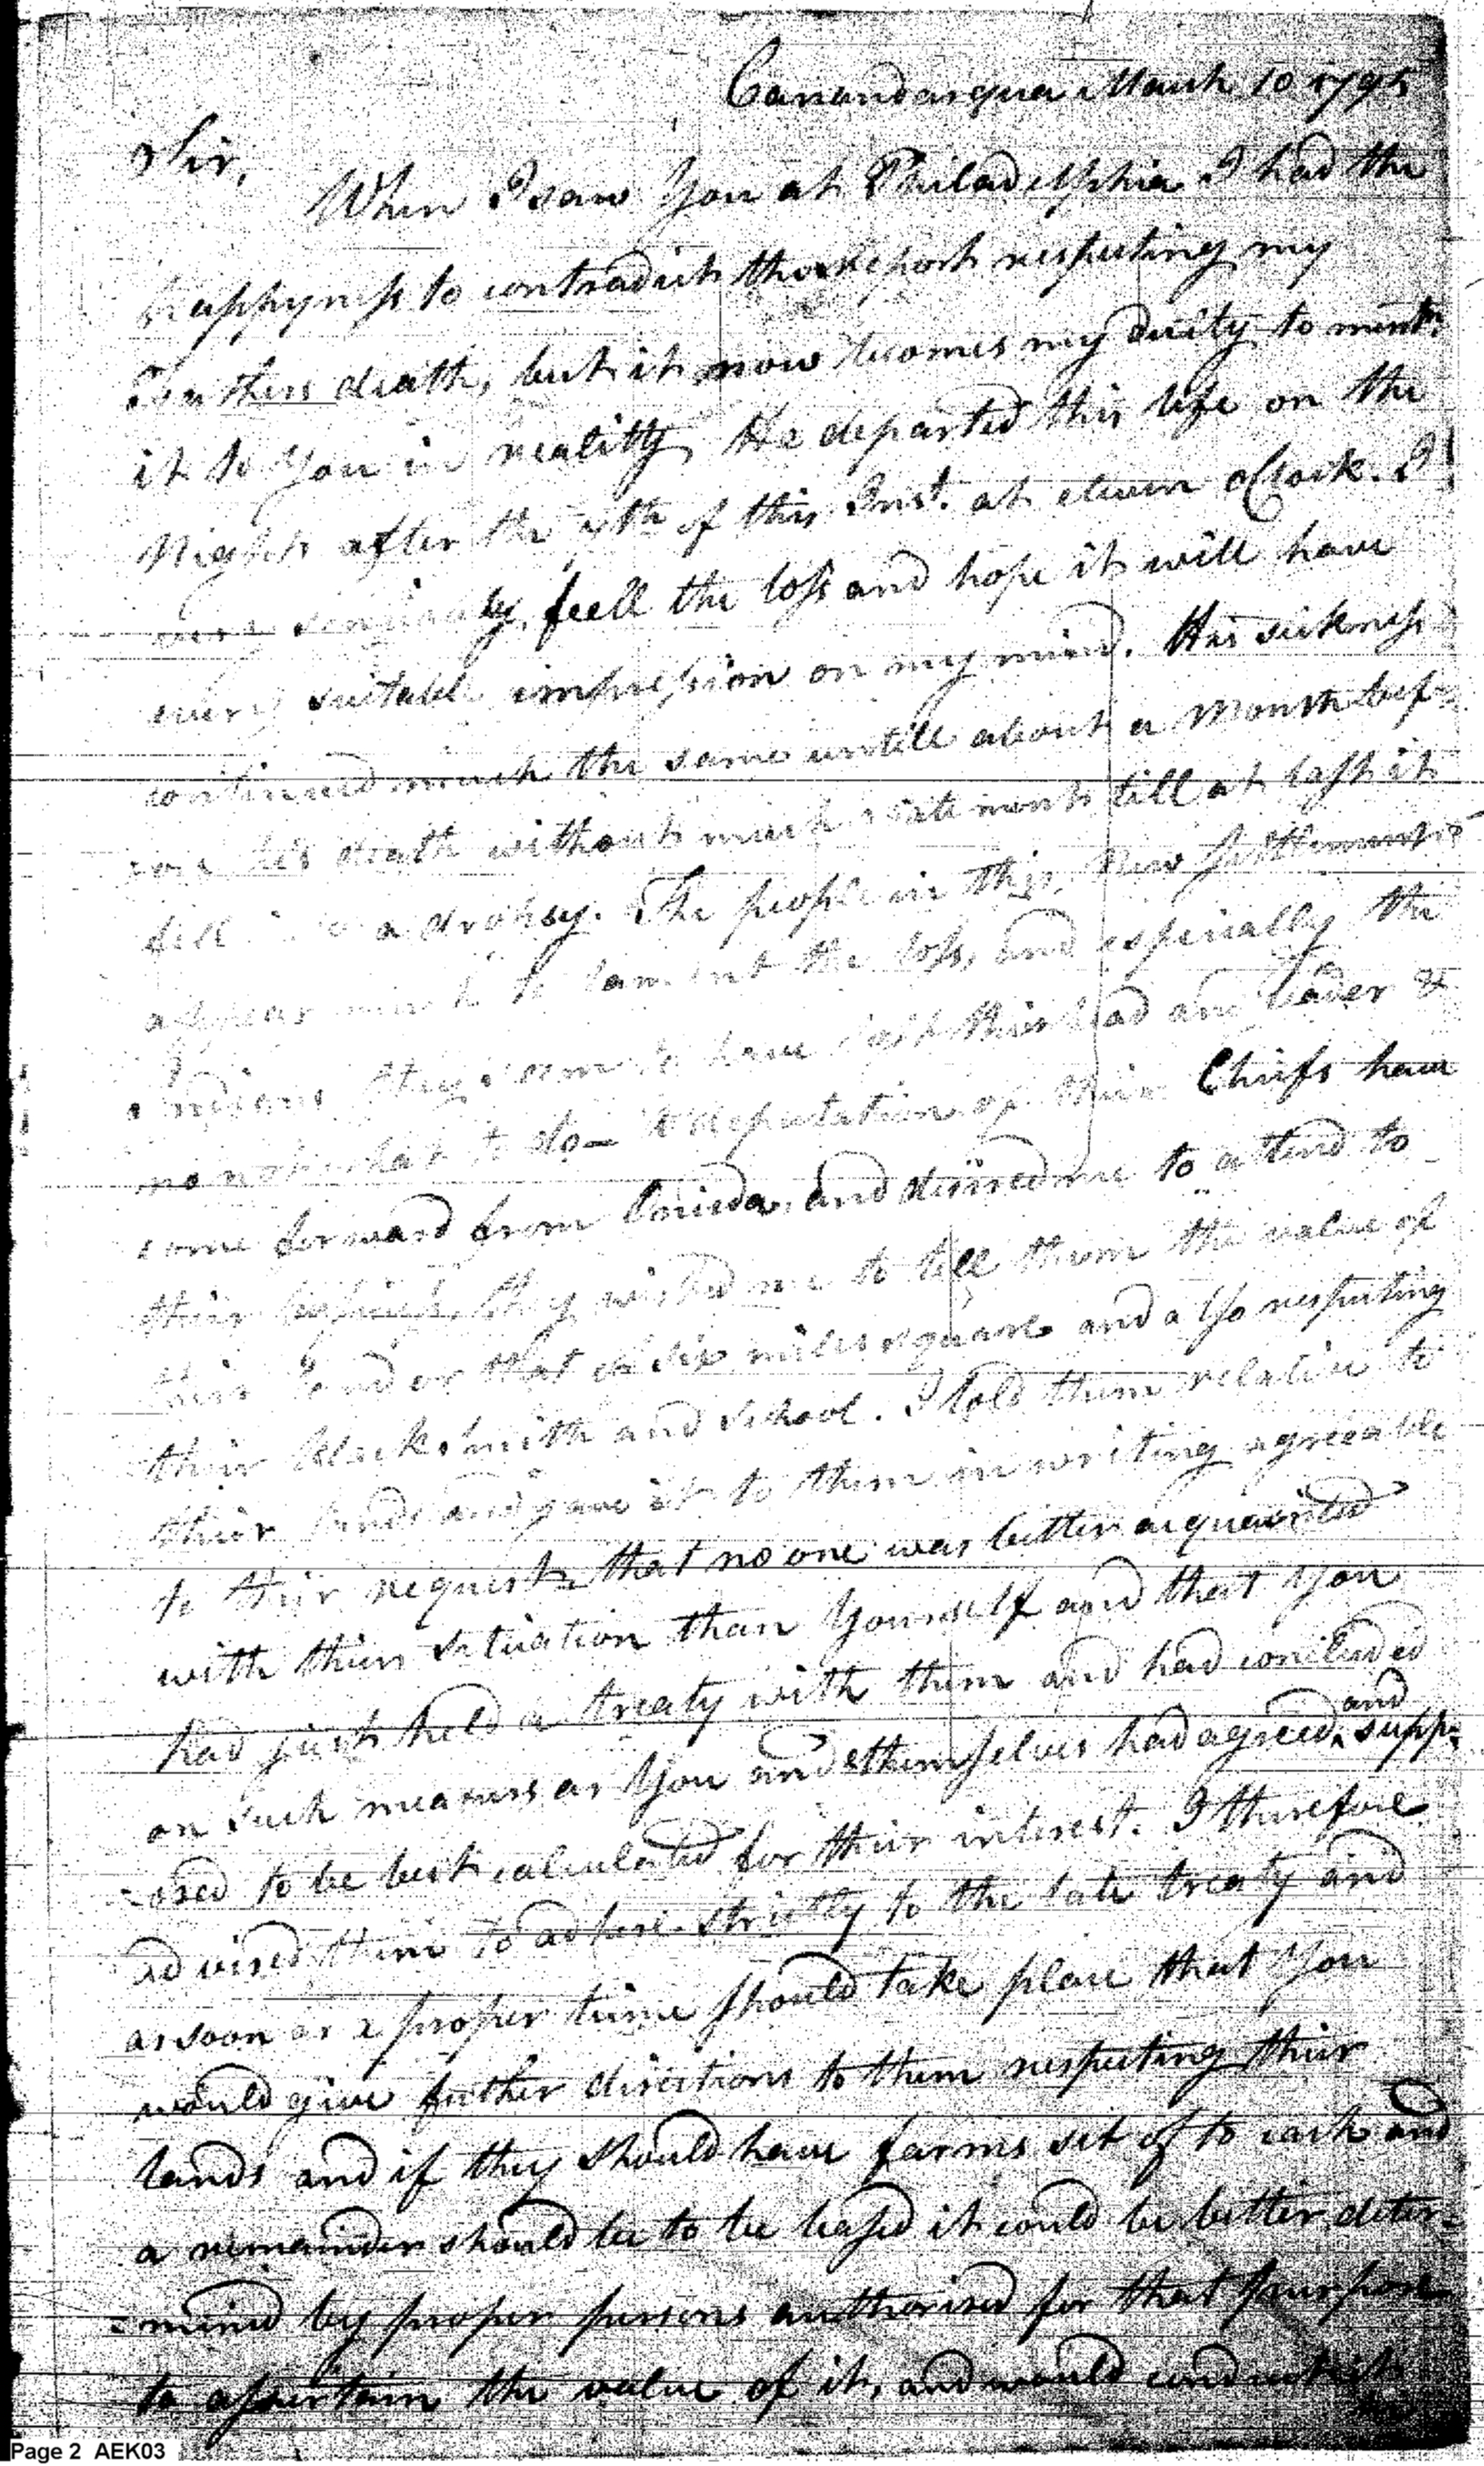 Canandarqua March 10 1795
Sir,
When I saw You at Philadelphia I had the
happyness to contradict the report respecting my
Fathers death, but it now becomes my duity to ment:
it to You in reality, He departed this life on the
Night after the 4th of this Inst. at eleven oClock. I
very sensibly feell the loss and hope it will have
every suitable impression on my mind. His sickness
continued much the same untill about a Month bef-
-ore his death without much till at last it
fell into a dropsy. The people in this New Settlement
appear much to lament the loss, and espicially the
Indians they seem to have lost their head and leader &
no not what to do— A deputation of their Chiefs have
come forward from Onieda, and desired me to attend to
their they wished me to tell them the value of
their land or that of six miles square and also respecting
their blacksmith and school. I told them relative to
their lands and gave it to them in writing agreeable
to their request, that no one was better acquainted
with their situation than Yourself and that You
had just held a treaty with them and had concluded
on such measurs as You and themselves had agreed, and supp-
-osed to be best calculated for their interest. I therefore
advised them to adhere strictly to the late treaty and
as soon as a proper time should take place that You
would give further directions to them respecting their
lands and if they should have farms set of to each and
a remainder should be to be leased it could be better deter-
=mined by proper persons authorised for that purpose
to assertain the value of it, and would conduct it
Page 2 AEK03